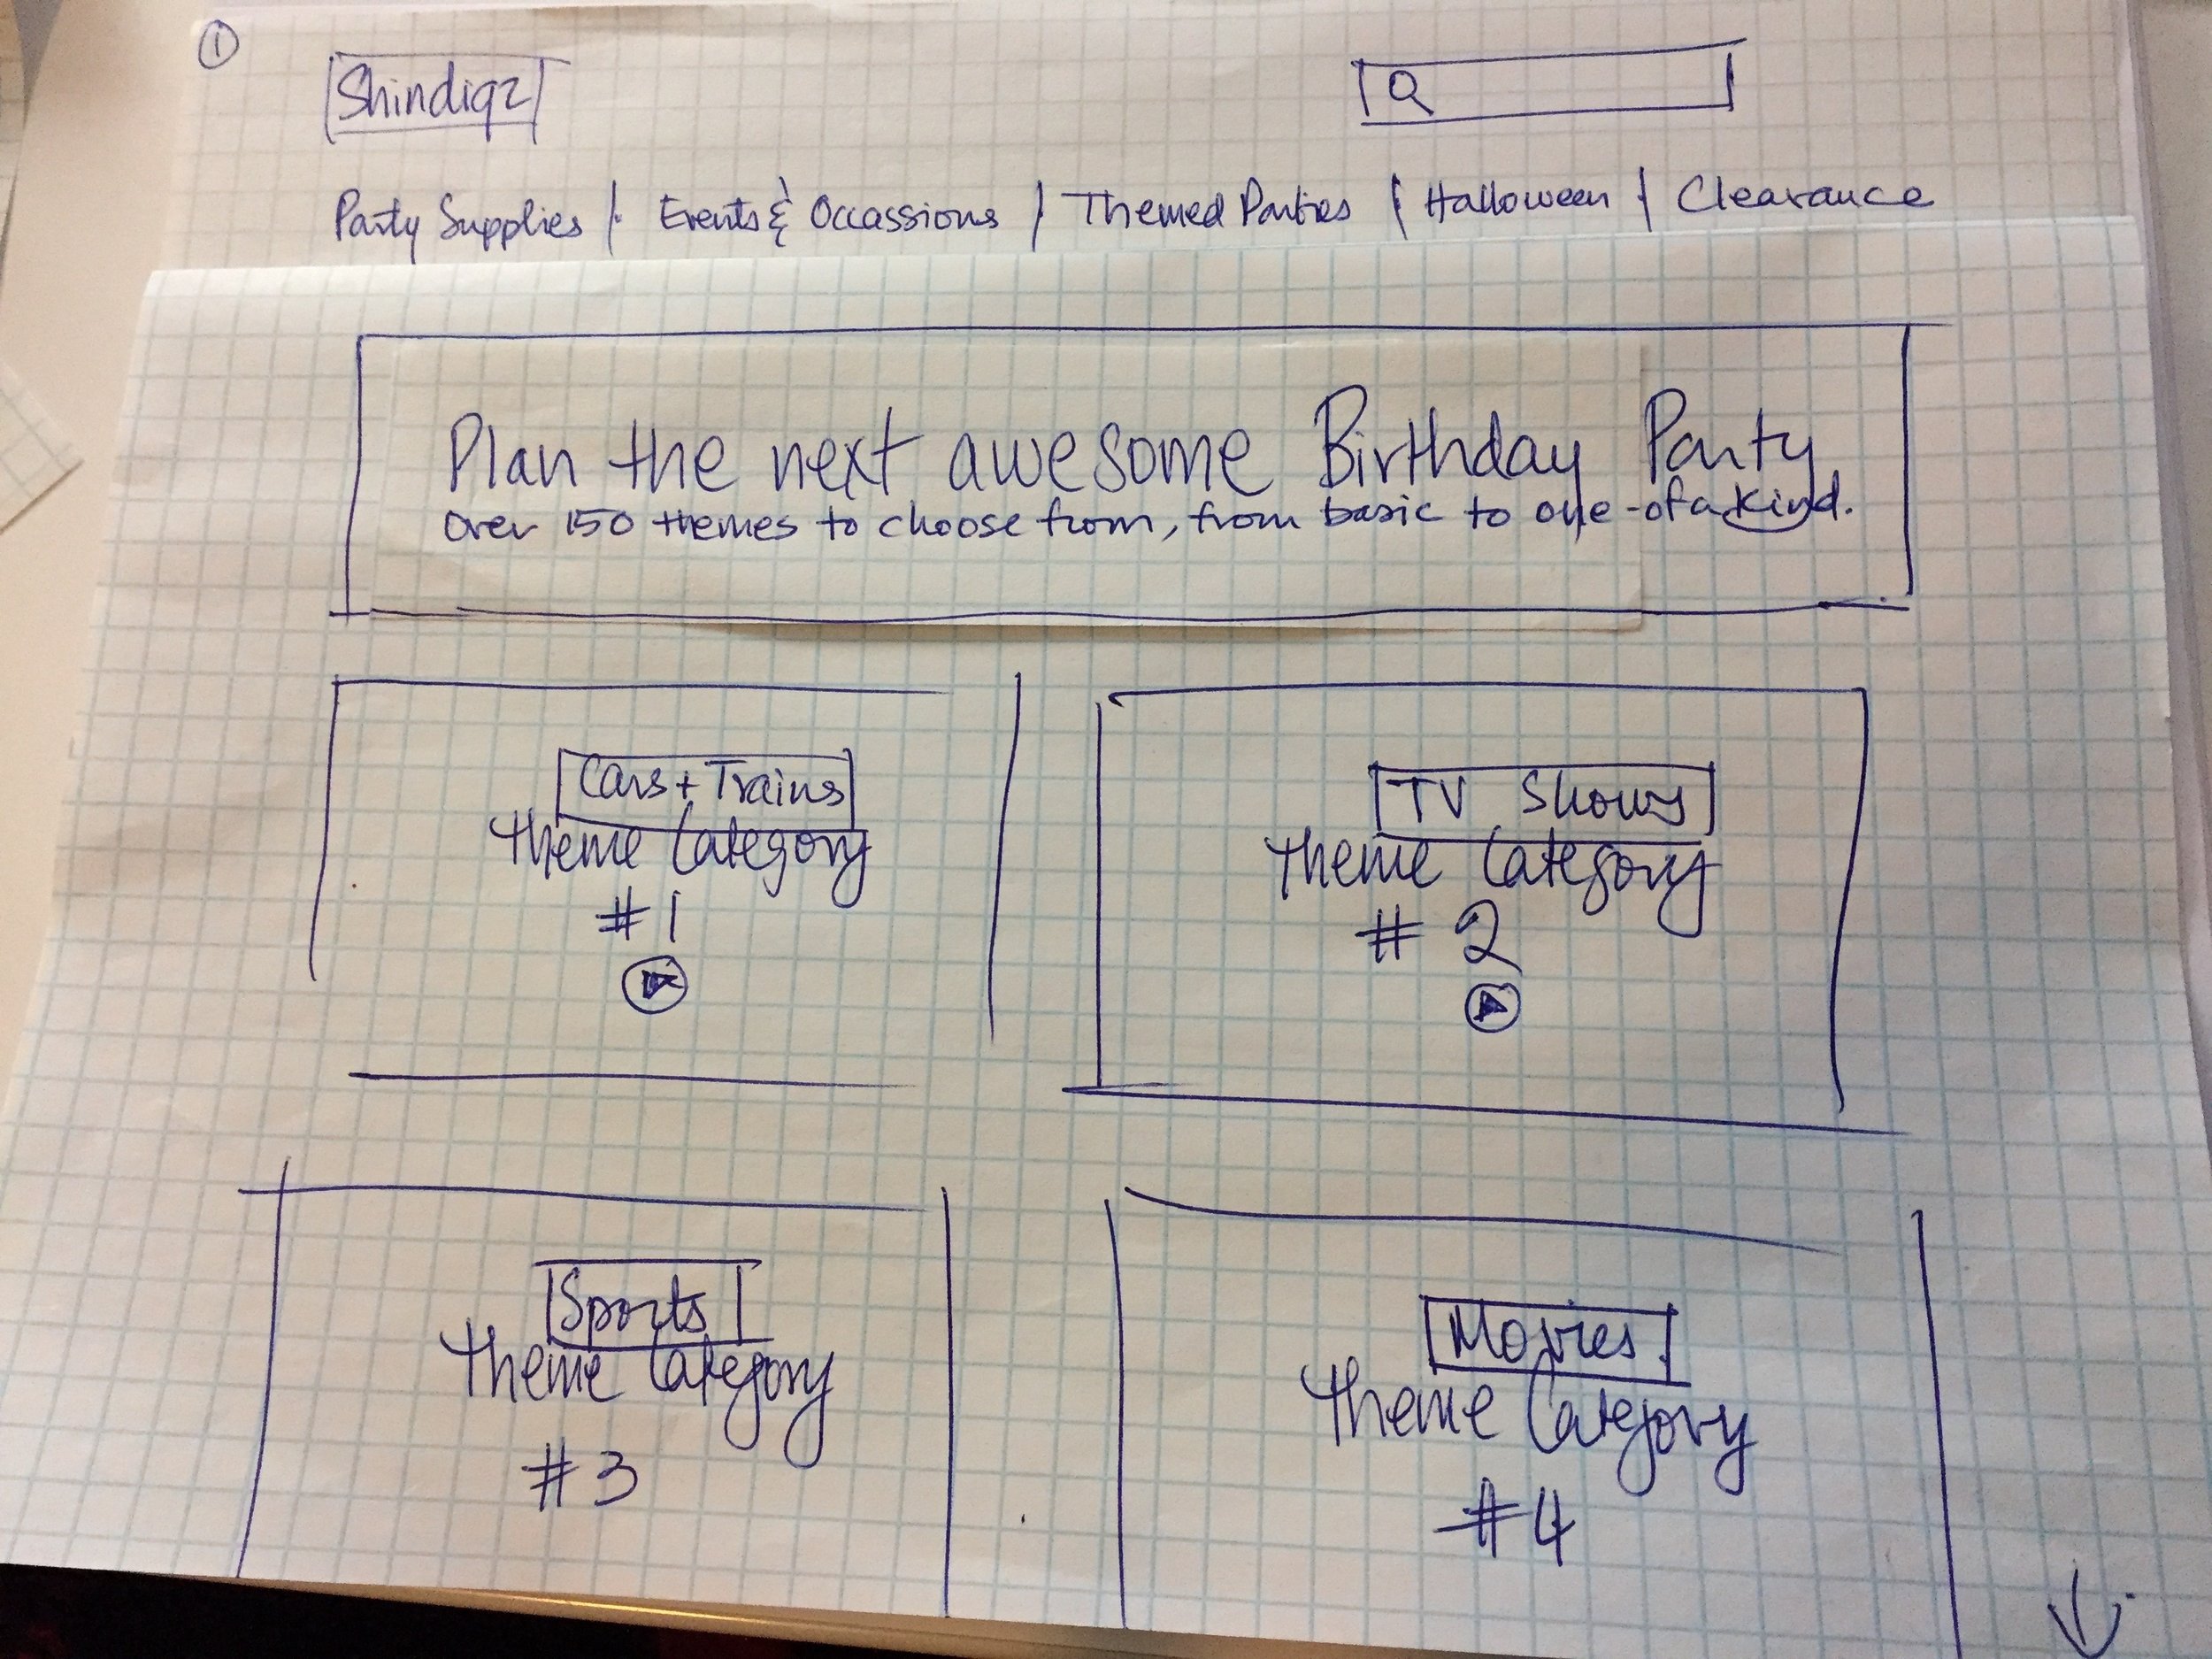 1
Shindigz
Party Supplies | Events & Occassions | Themed Parties | Halloween | Clearance
Plan the next awesome Birthday Party
Over 150 themes to choose from, from basic to one-of a kind.
Cars + Trains
Theme Category
#1
TV Shows
Theme Category
# 2
Sports
Theme Category
#3
Movies
Theme Category
#4